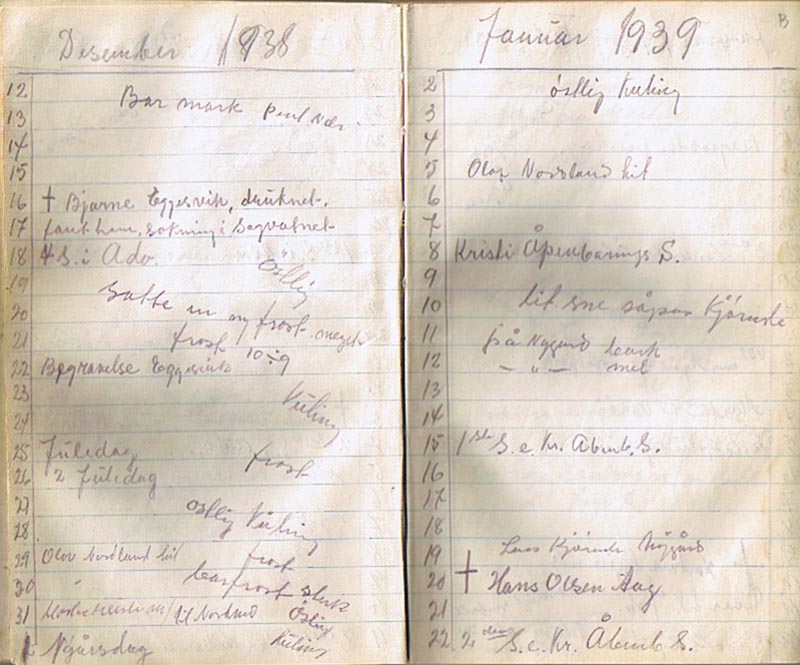 Desember 1938
12
Bar mark
13
14
15
16 † Bjarne Eggesvik, druknet.
17 fant ham, sokning i Sagvatnet
18 4 S. i Adv.
Östlig
19
Satte in ny frost meget
20
21 frost 10÷9
22 Begravelse Eggesvik
23
Kuling
24
25 Juledag
frost
26 2 Juledag
27
östlig Kuling
28
29 Olov Nordland hit
frost
30
barfrost sterk
31 til Nordmo Östlig
1 Nyårsdag Kuling
Januar 1939
B
2 östlig Kuling
3
4
5 Olov Nordland hit
6
7
8 Kristi Åpenbarings S.
9
10 lit sne såpas Kjöreföre
11 från Nygård
12 — " — mel
13
14
15 1ste S. e. Kr. Åbenb. S.
16
17
18
19 Lars
20 † Hans Olsen Aag
21
22 2 den S. e. Kr. Åbenb S.